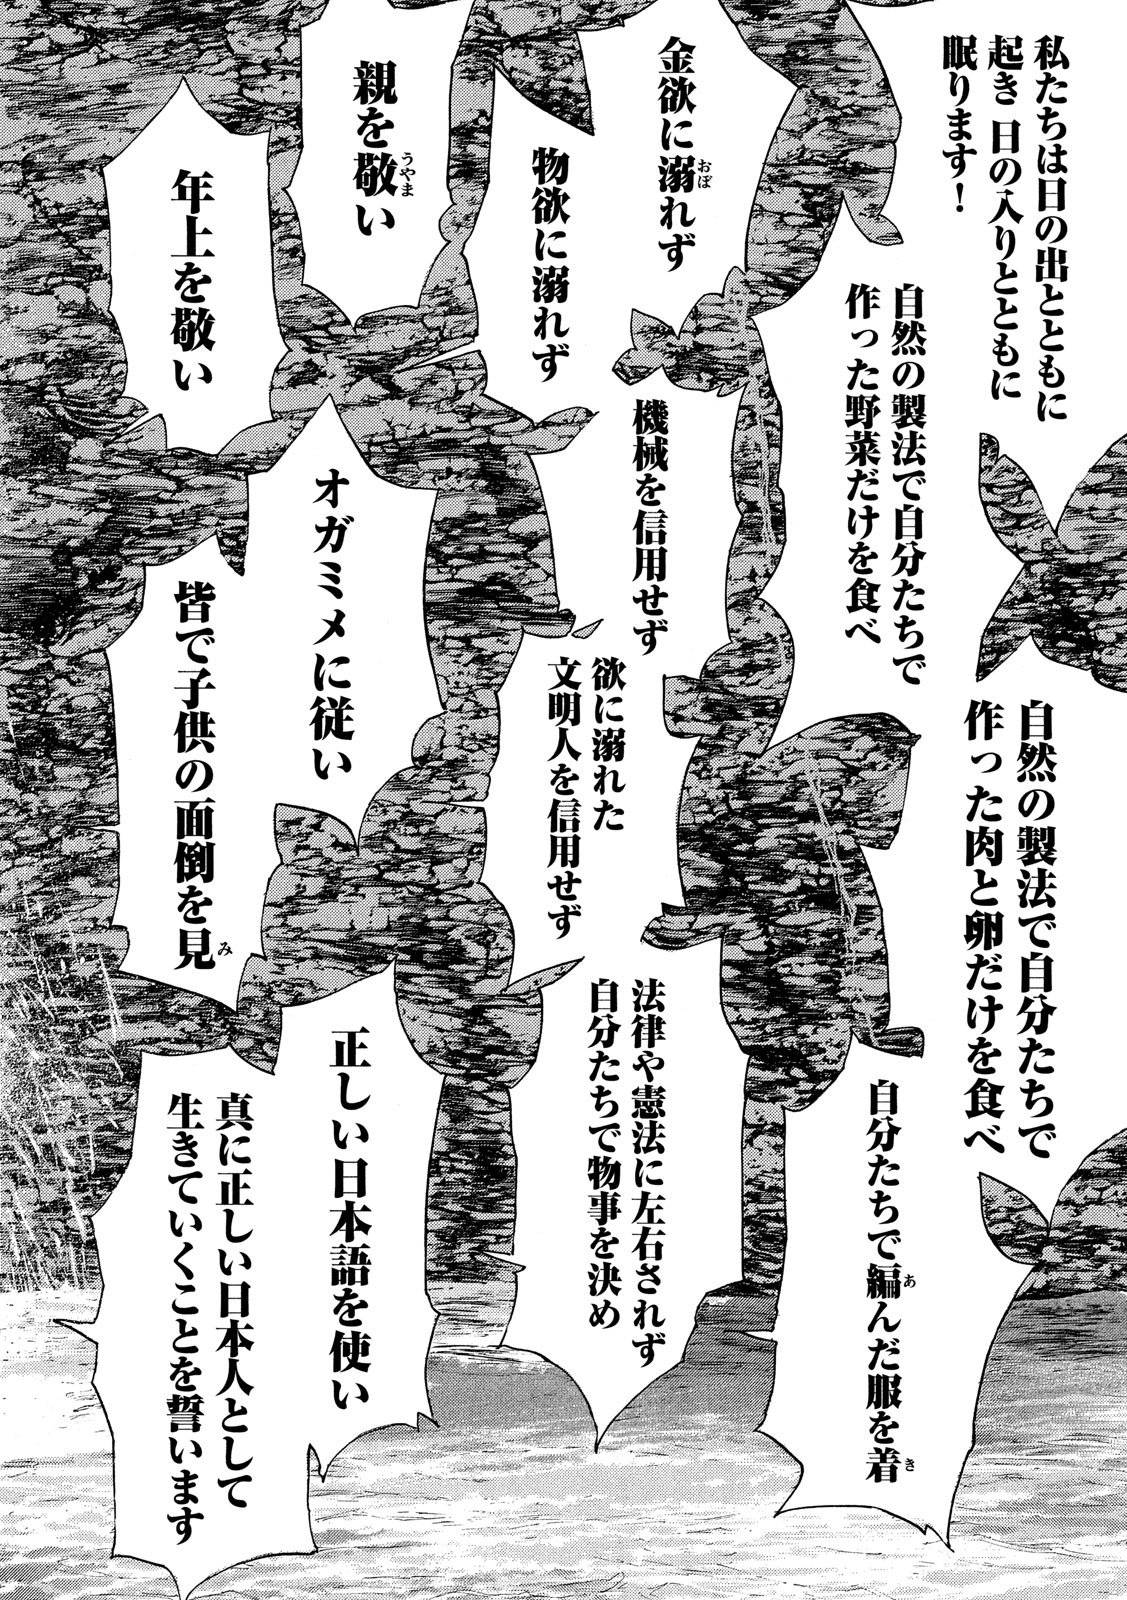 私たちは日の出とともに
起き 日の入りとともに
眠ります！
自然の製法で自分たちで
作った野菜だけを食べ
自然の製法で自分たちで
作った肉と卵だけを食べ
自分たちで編んだ服を着
あ
き
金欲に溺れず
おぼ
物欲に溺れず
機械を信用せず
欲に溺れた
文明人を信用せず
法律や憲法に左右されず
自分たちで物事を決め
親を敬い
うやま
年上を敬い
オガミメに従い
皆で子供の面倒を見
み
正しい日本語を使い
真に正しい日本人として
生きていくことを誓います